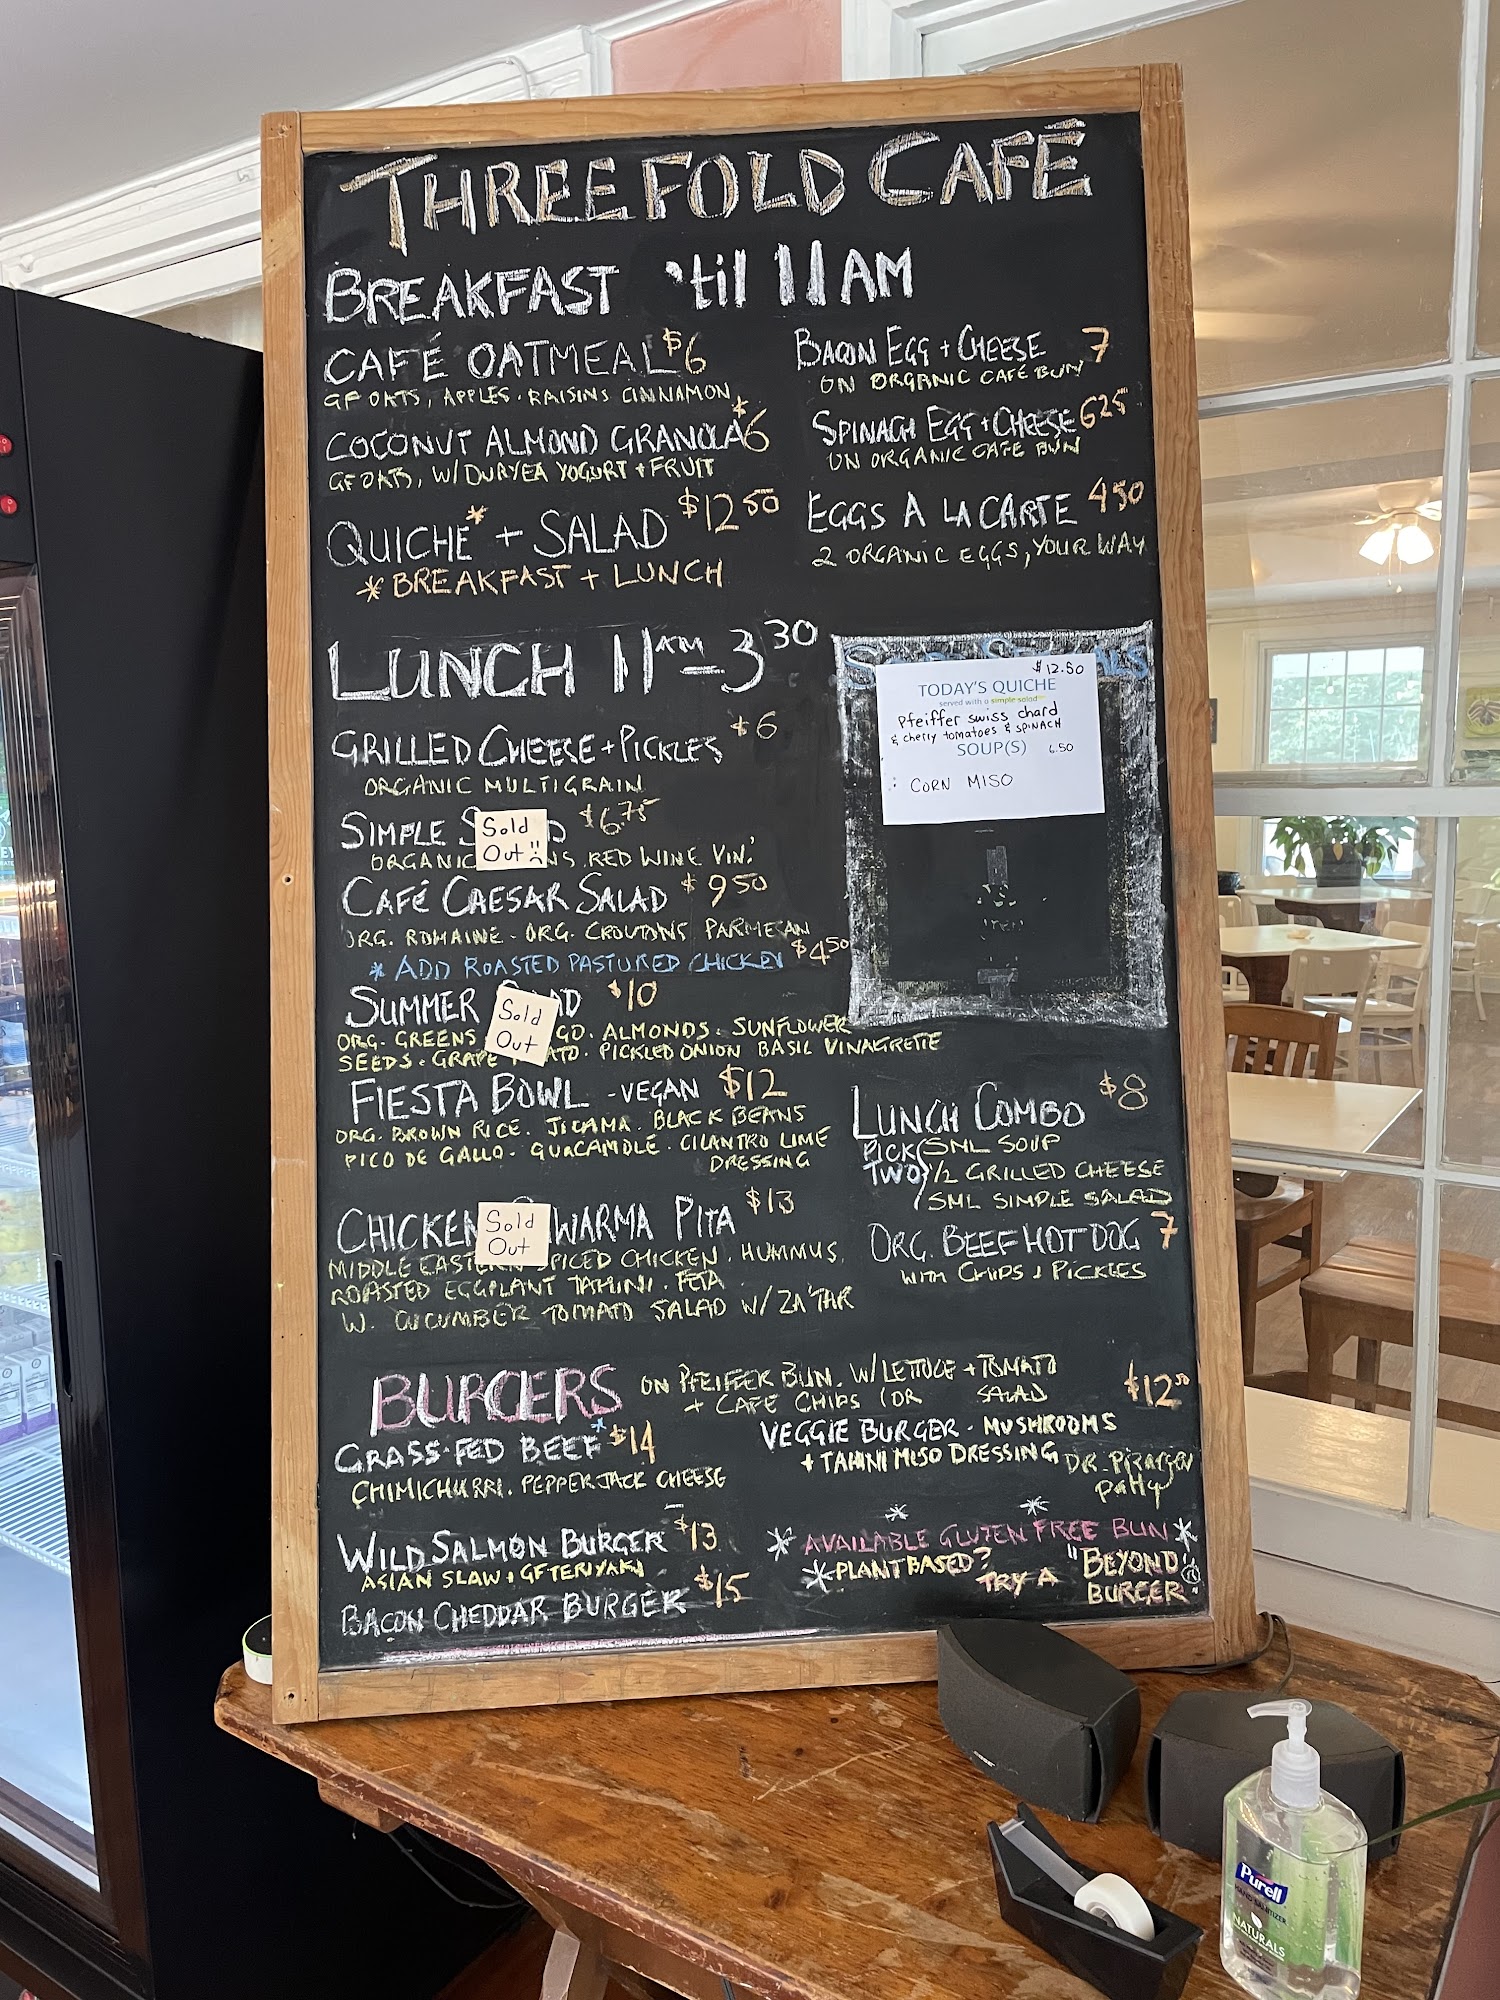 THREEFOLD CAFÉ
BREAKFAST 'til 11 AM
CAFÉ OATMEAL $6
GF OATS, APPLES. RAISINS CINNAMON
COCONUT ALMOND GRANOLA* 6
GF OATS, W/ DURYEA YOGURT + FRUIT
QUICHE* + SALAD $12 50
* BREAKFAST + LUNCH
BACON EGG + CHEESE 7
ON ORGANIC CAFE BUN
SPINACH EGG + CHEESE 6 25
ON ORGANIC CAFE BUN
EGGS A LA CARTE 4 50
2 ORGANIC EGGS, YOUR WAY
LUNCH 11 AM - 3 30
GRILLED CHEESE + PICKLES $6
ORGANIC MULTIGRAIN
SIMPLE $6.75
Sold
Out
ORGANIC RED WINE VIN.
CAFÉ CAESAR SALAD $9 50
ORG. ROMAINE. ORG. CROUTONS PARMESAN
* ADD ROASTED PASTURED CHICKEN $4 50
SUMMER $10
Sold
Out
ORG. GREENS ALMONDS. SUNFLOWER
SEEDS. GRAPE PICKLED ONION BASIL VINAIGRETTE
FIESTA BOWL - VEGAN $12
ORG. BROWN RICE. JICAMA. BLACK BEANS
PICO DE GALLO. GUACAMOLE. CILANTRO LIME
DRESSING
CHICKEN WARMA PITA $13
Sold
Out
MIDDLE EASTERN SPICED CHICKEN. HUMMUS,
ROASTED EGGPLANT TAHINI. FETA
W. CUCUMBER TOMATO SALAD W/ ZA'TAR
$12.50
TODAY'S QUICHE
served with a simple salad
Pfeiffer swiss chard
& cherry tomatoes & SPINACH
SOUP(S) 6.50
: CORN MISO
LUNCH COMBO $8
PICK TWO
SML SOUP
1/2 GRILLED CHEESE
SML SIMPLE SALAD
ORG. BEEF HOT DOG 7
WITH CHIPS & PICKLES
BURGERS ON PFEIFFER BUN. W/ LETTUCE + TOMATO
+ CAFE CHIPS (OR SALAD
GRASS-FED BEEF* $14
CHIMICHURRI. PEPPERJACK CHEESE
WILD SALMON BURGER $13
ASIAN SLAW + GF TERIYAKI
BACON CHEDDAR BURGER $15
$12 50
VEGGIE BURGER. MUSHROOMS
+ TAHINI MISO DRESSING DR. PRAEGER
Patty
* AVAILABLE GLUTEN FREE BUN *
* PLANT BASED? TRY A "BEYOND
BURGER"
Purell
HAND SANITIZER
NATURALS